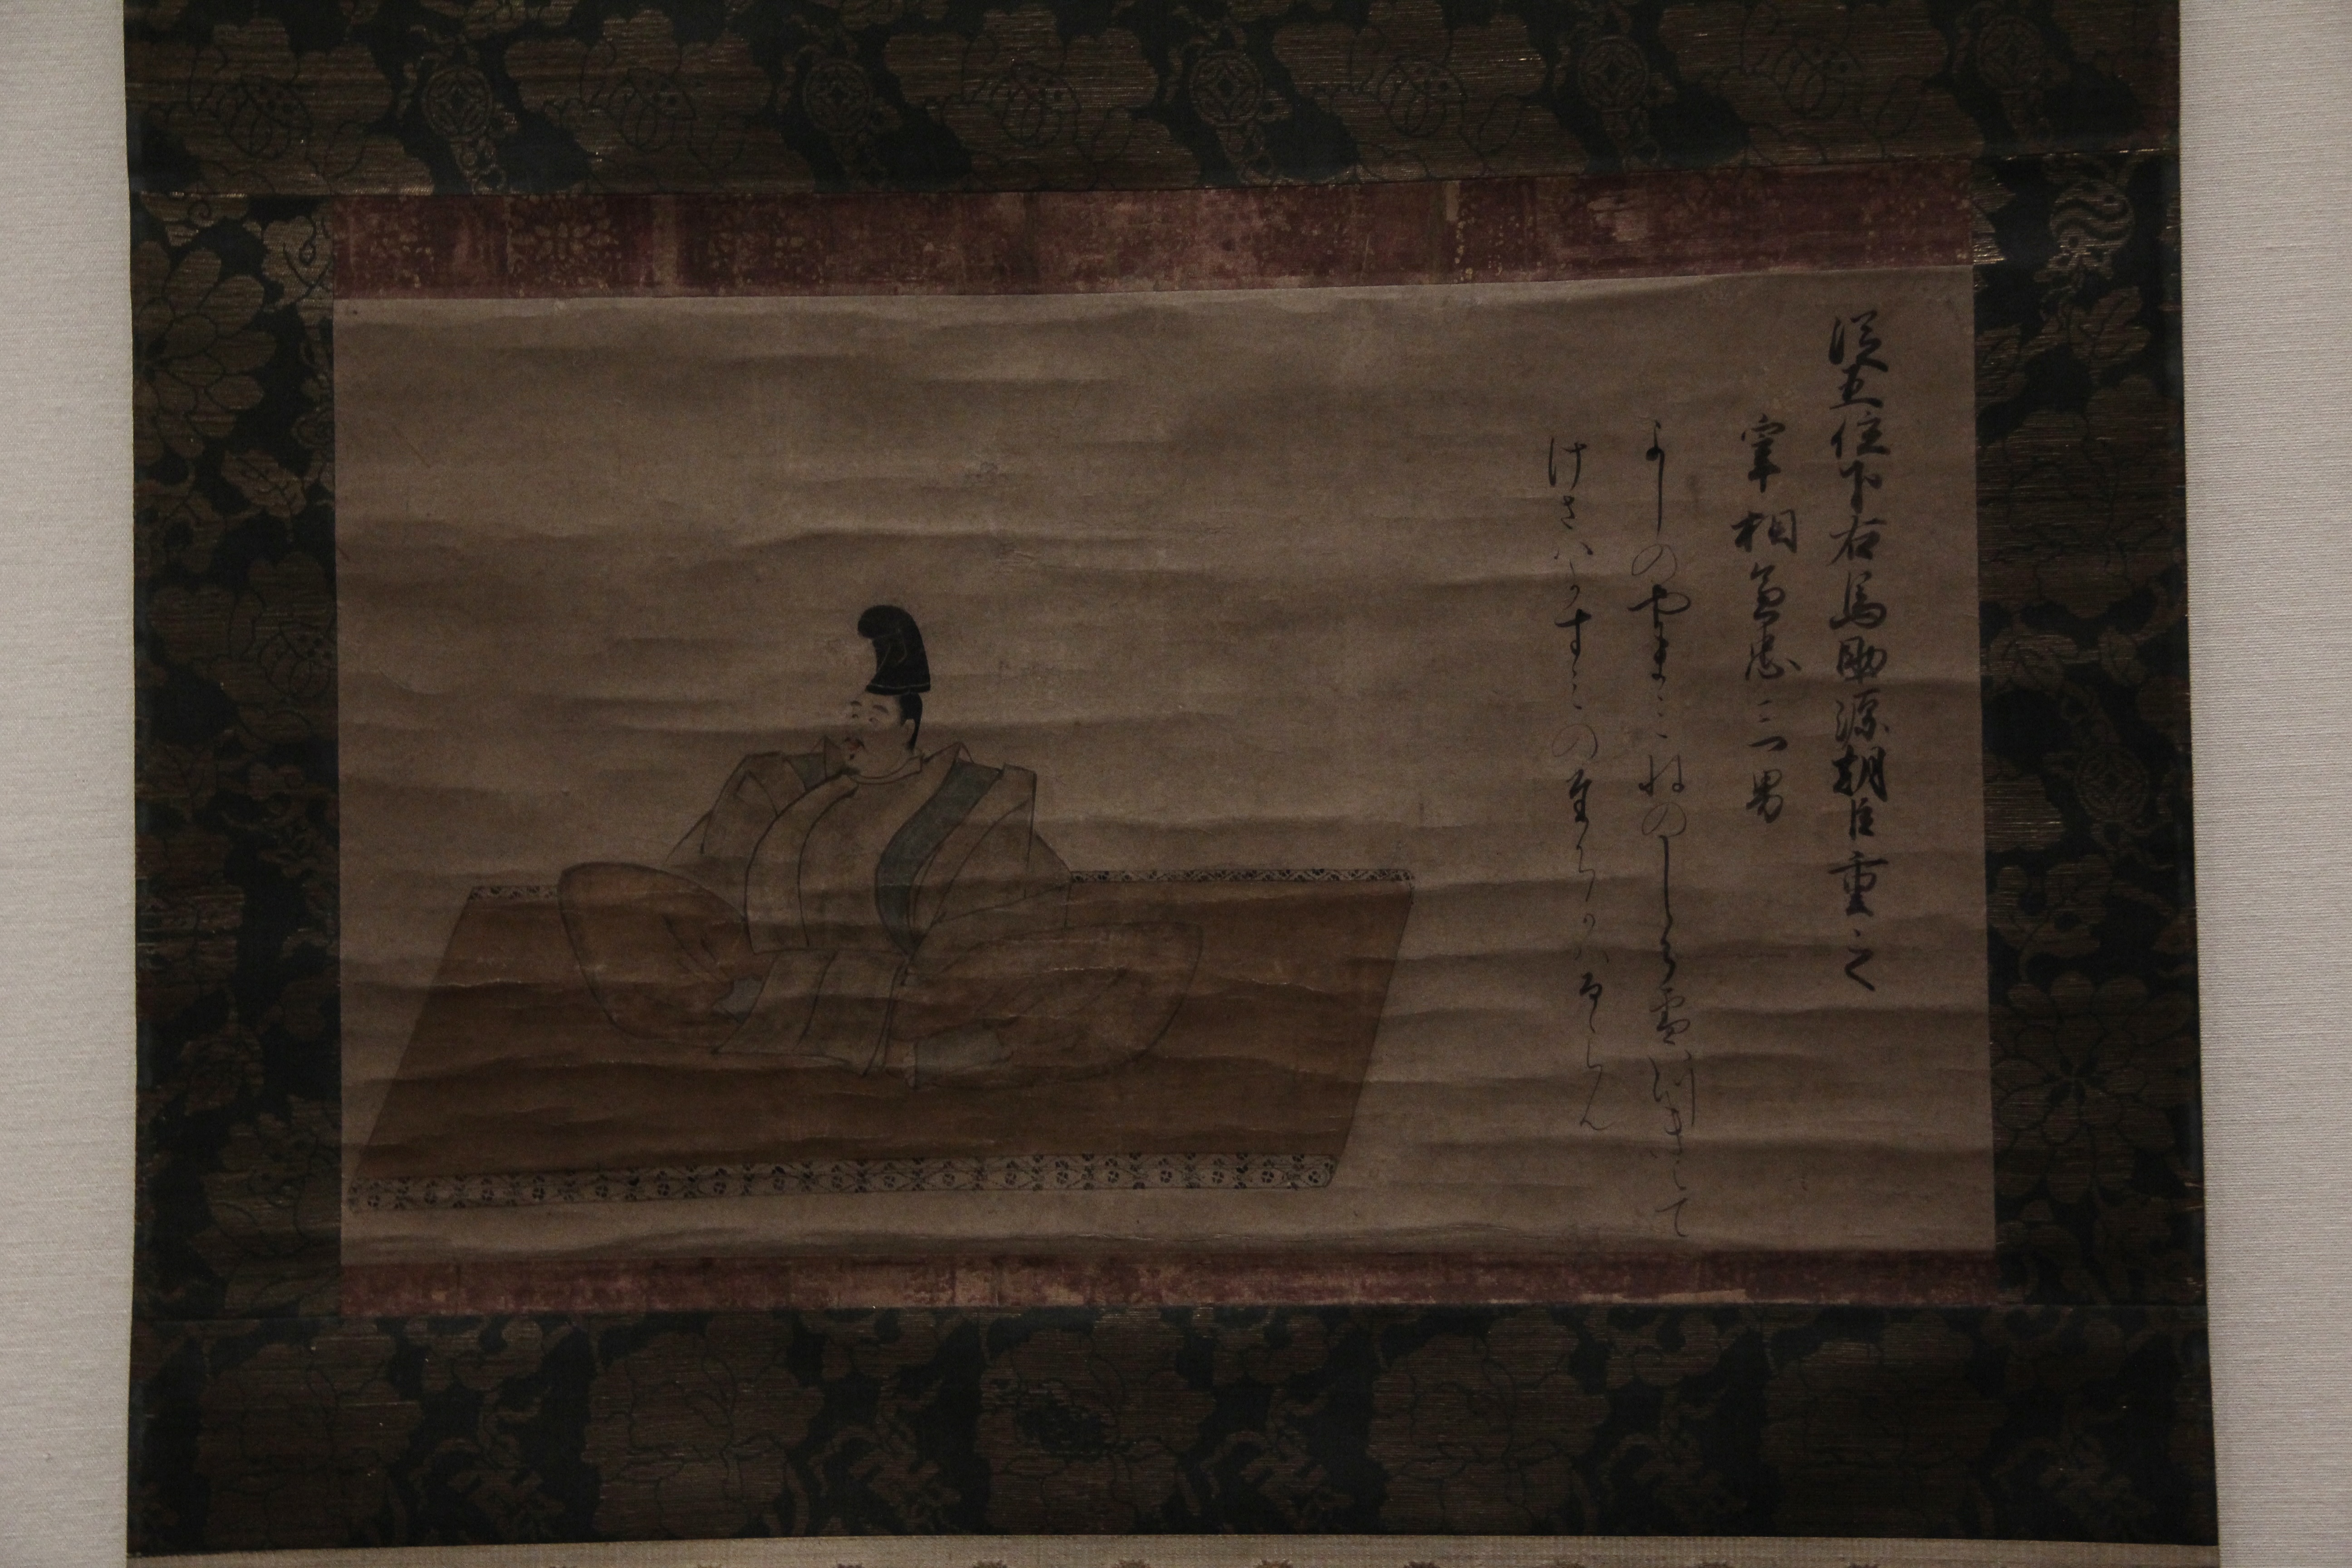 従五位下右馬助源朝臣重之
宰相兼忠三男
よしのやまみねのしら雪いつきえて
けさハかすミのたちかハるらん